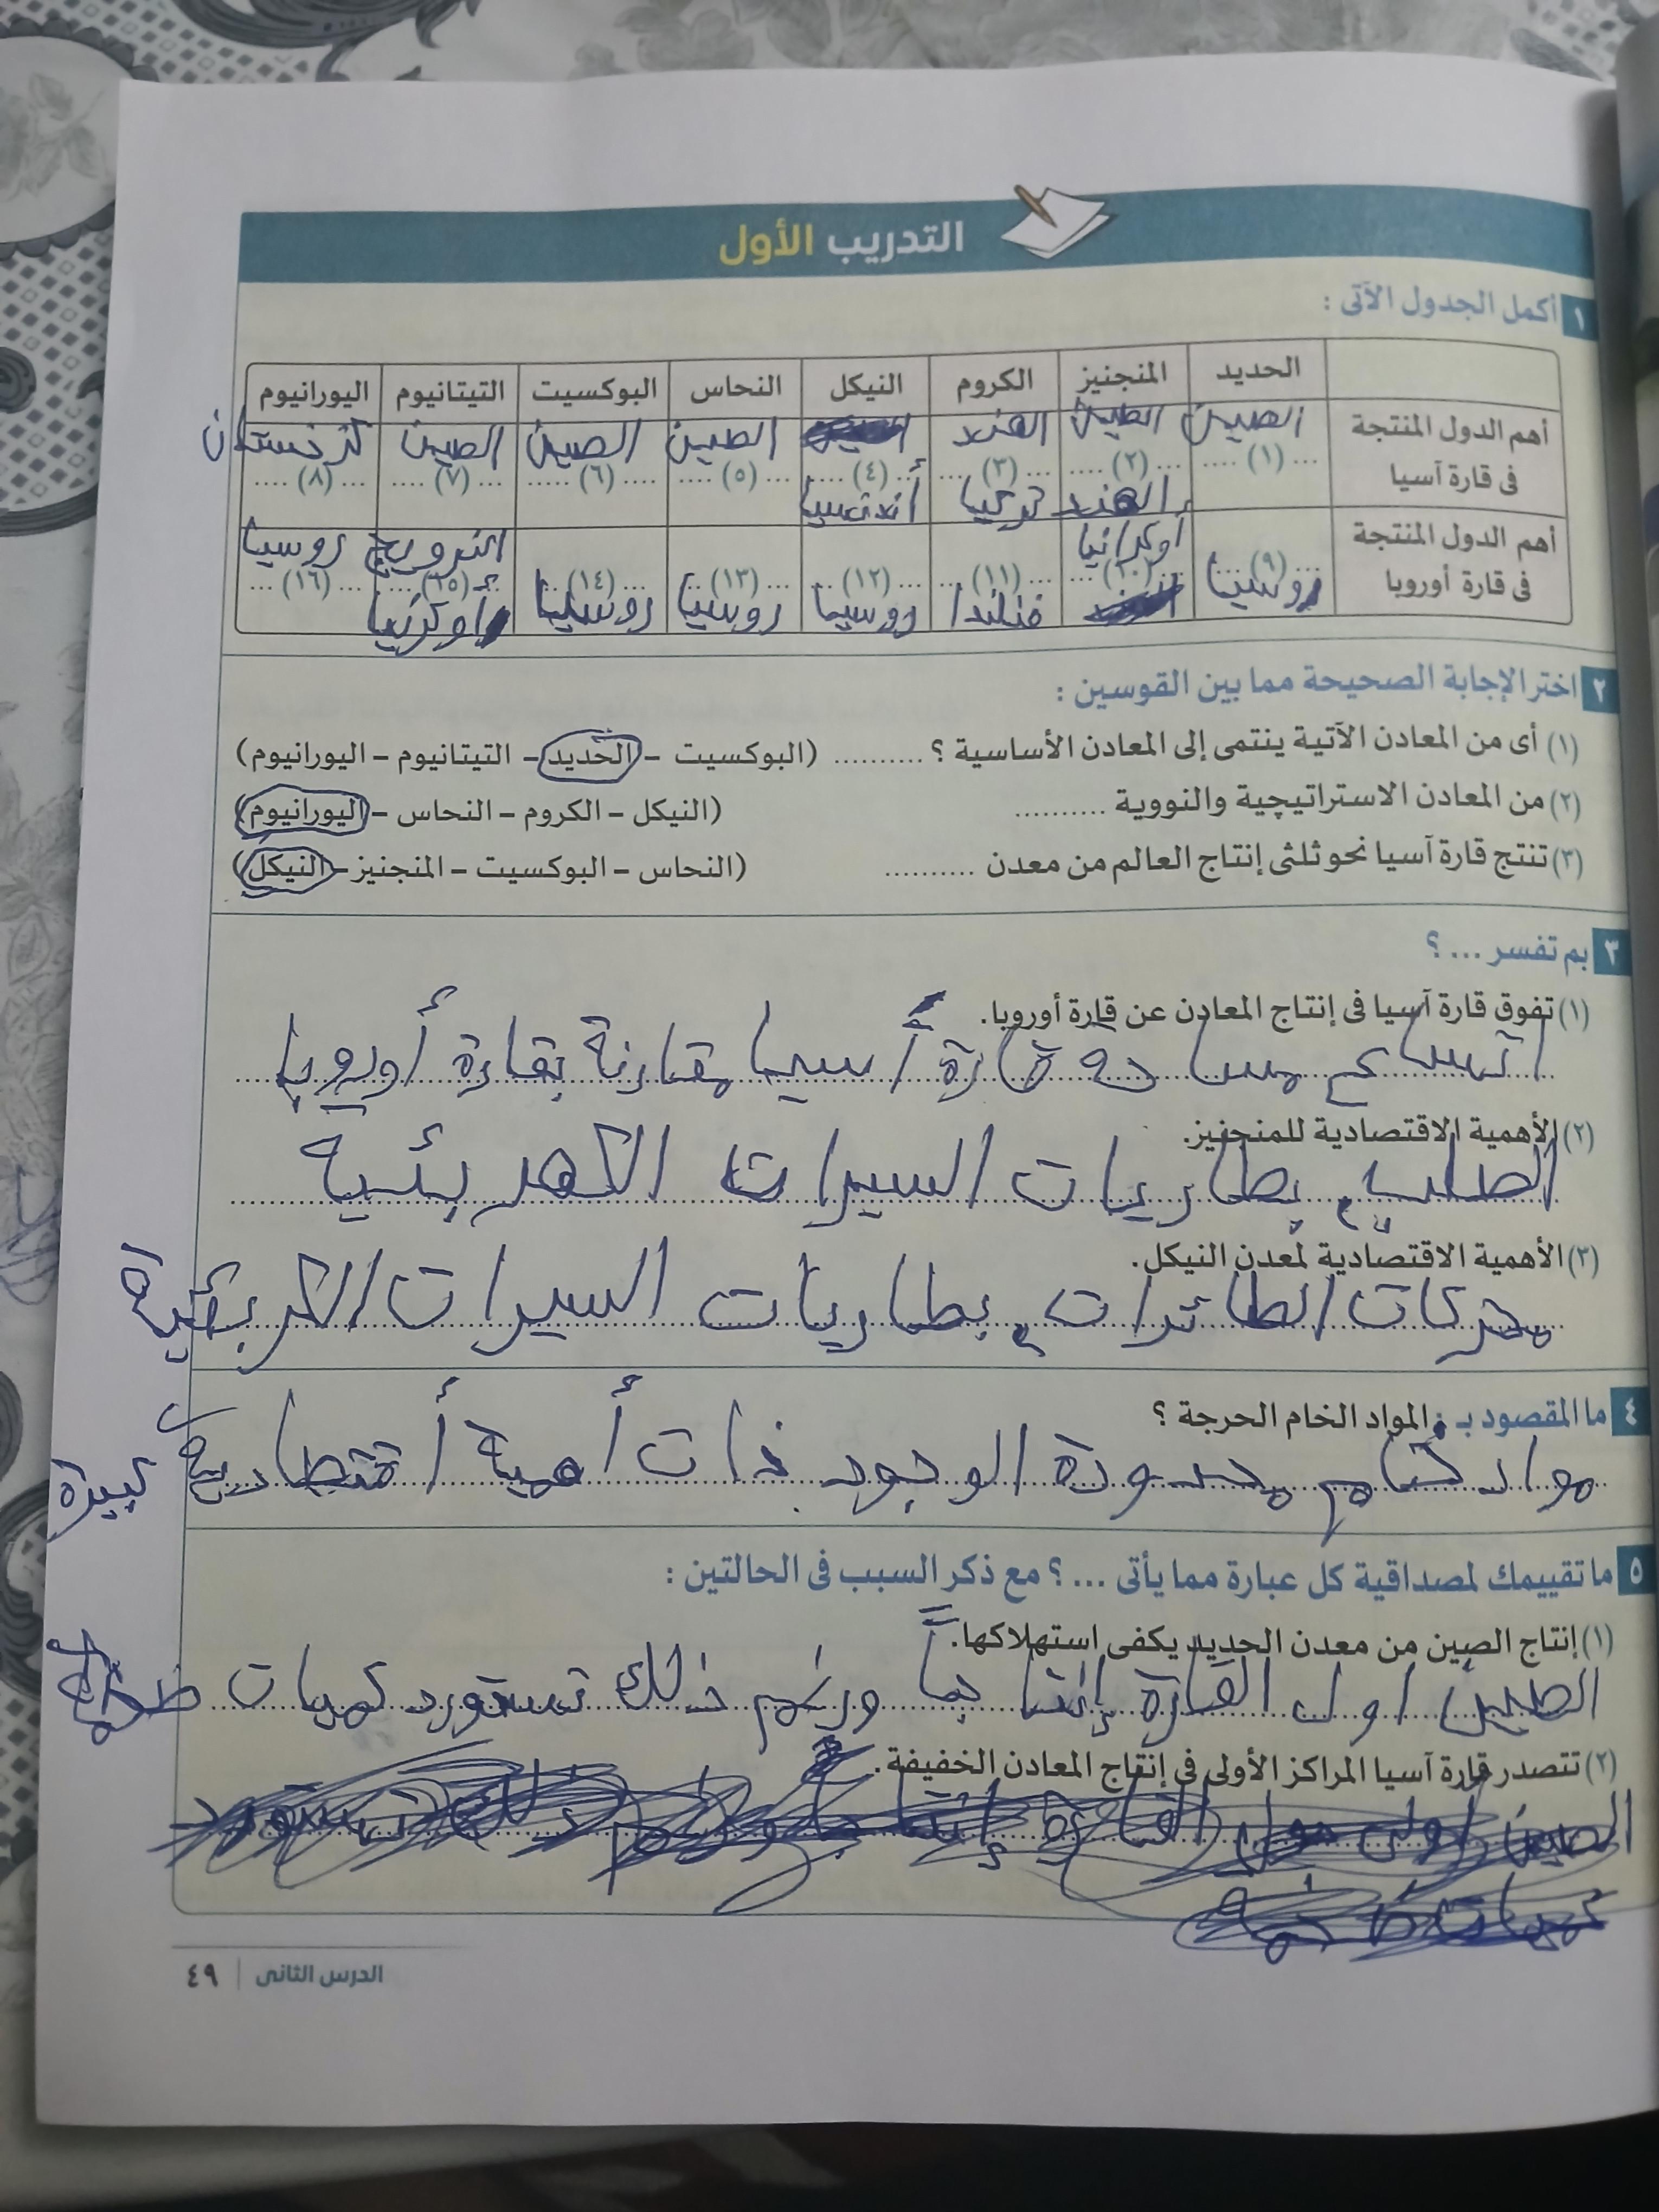 التدريب الأول
١ أكمل الجدول الآتى :
الحديد المنجنيز الكروم النيكل النحاس البوكسيت التيتانيوم اليورانيوم
أهم الدول المنتجة الصين الصين الهند الصين الصين الصين كزخستان
فى قارة آسيا ... (١) .... ... (٢) .... ... (٣) .... ... (٤) .... ... (٥) .... .... (٦) ..... ... (٧) .... ... (٨) ....
الهند تركيا أندنسيا
أهم الدول المنتجة أوكرانيا النرويج روسيا
فى قارة أوروبا (٩) (١٠) (١١) (١٢) (١٣) (١٤) (١٥) (١٦)
روسيا فنلندا روسيا روسيا روسيا أوكرنيا
٢ اختر الإجابة الصحيحة مما بين القوسين :
(١) أى من المعادن الآتية ينتمى إلى المعادن الأساسية ؟ .......... (البوكسيت – الحديد – التيتانيوم – اليورانيوم)
(٢) من المعادن الاستراتيچية والنووية .......... (النيكل – الكروم – النحاس – اليورانيوم)
(٣) تنتج قارة آسيا نحو ثلثى إنتاج العالم من معدن .......... (النحاس – البوكسيت – المنجنيز – النيكل)
٣ بم تفسر ... ؟
(١) تفوق قارة آسيا فى إنتاج المعادن عن قارة أوروبا.
اتساع مساحه قارة أسيا مقارنة بقارة أوروبا
(٢) الأهمية الاقتصادية للمنجنيز.
الصلب، بطاريات السيرات الكهربئية
(٣) الأهمية الاقتصادية لمعدن النيكل.
محركات الطائرات، بطاريات السيرات الكربئية
٤ ما المقصود بـ : المواد الخام الحرجة ؟
مواد خام محدودة الوجود ذات أهمية أقتصادية كبيرة
٥ ما تقييمك لمصداقية كل عبارة مما يأتى ... ؟ مع ذكر السبب فى الحالتين :
(١) إنتاج الصين من معدن الحديد يكفى استهلاكها.
الصين اول القارة إنتاجاً ورغم ذلك تستورد كميات
(٢) تتصدر قارة آسيا المراكز الأولى فى إنتاج المعادن الخفيفة.
الدرس الثانى | ٤٩